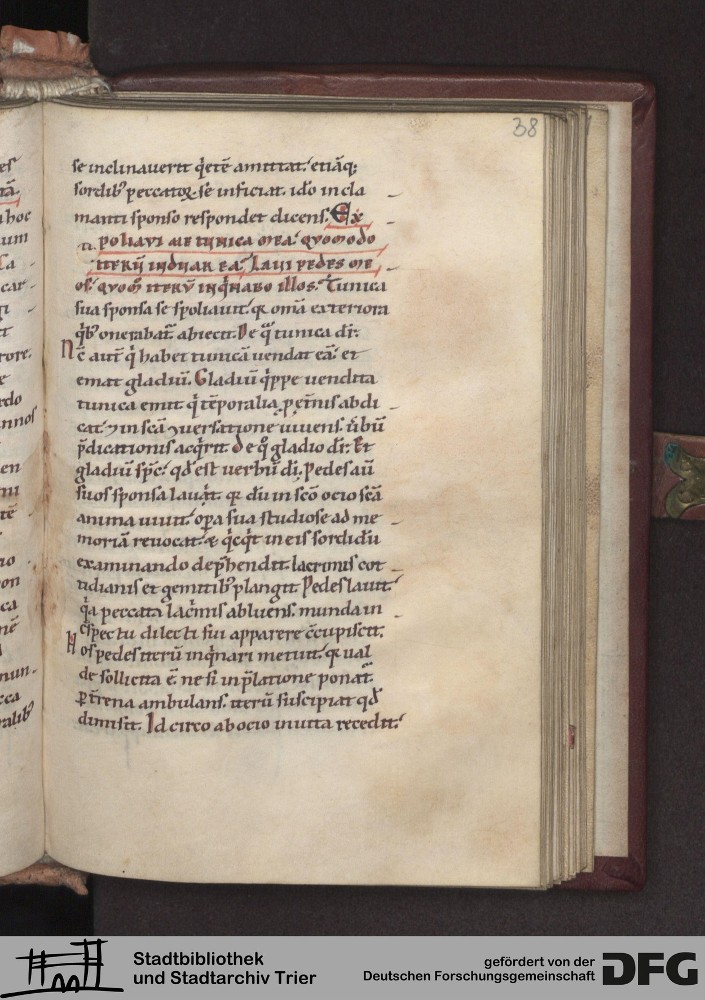 38
se inclinauerit q̇etē amittat. etiāq;
sordib; peccatoꝝ se inficiat. idō in cla
manti sponso respondet dicens. Ex
poliavi me tunica mea. quomodo
iterū induar ea. Laui pedes me
os. quom̄ iterū inq̇nabo illos. Tunica
sua sponsa se spoliauit. qꝛ om̄ia exteriora
q̇b; onerabat᷑. abiecit. De q̄ tunica dr̄.
Nc̄ aut̄ q̇ habet tunicā uendat eā. et
emat gladiū. Gladiū q̇ppe uendita
tunica emit q̇ tēporalia ꝓ et̄nis abdi
cat. ⁊ in sc̄a ɔuersatione uiuens. ūbū
p̄dicationis acq̇rit. De q̊ gladio dr̄. Et
gladiū sp̄c. qd̄ est uerbū dī. Pedes aū
suos sponsa lauit. qꝛ dū in sc̄o ocio sc̄a
anima uiuit. oꝑa sua studiose ad me
moriā reuocat. & q̇cq̇t in eis sordidū
examinando dep̄hendit. lacrimis cot
tidianis et gemitib; plangit. Pedes lauit.
q̇a peccata laċmis abluens. munda in
ɔspectu dilecti sui apparere ɔcupiscit.
Hos pedes iterū inq̇nari metuit. qꝛ ual
de sollicita ē. ne si in p̄latione ponat᷑.
ꝑ t̄rena ambulans. iterū suscipiat qd̄
dimisit. Idcirco ab ocio inuita recedit.
Stadtbibliothek
und Stadtarchiv Trier
gefördert von der
Deutschen Forschungsgemeinschaft
DFG